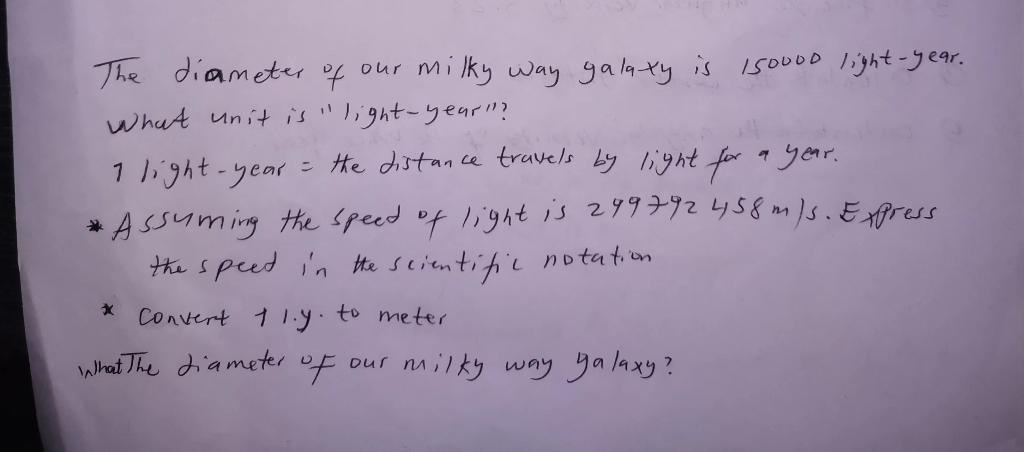 The diameter of our milky way galaxy is 150000 light-year.
What unit is "light-year"?
1 light-year = the distance travels by light for a year.
* Assuming the speed of light is 299792458 m/s. Express
the speed in the scientific notation
* Convert 1 l.y. to meter
What The diameter of our milky way galaxy?